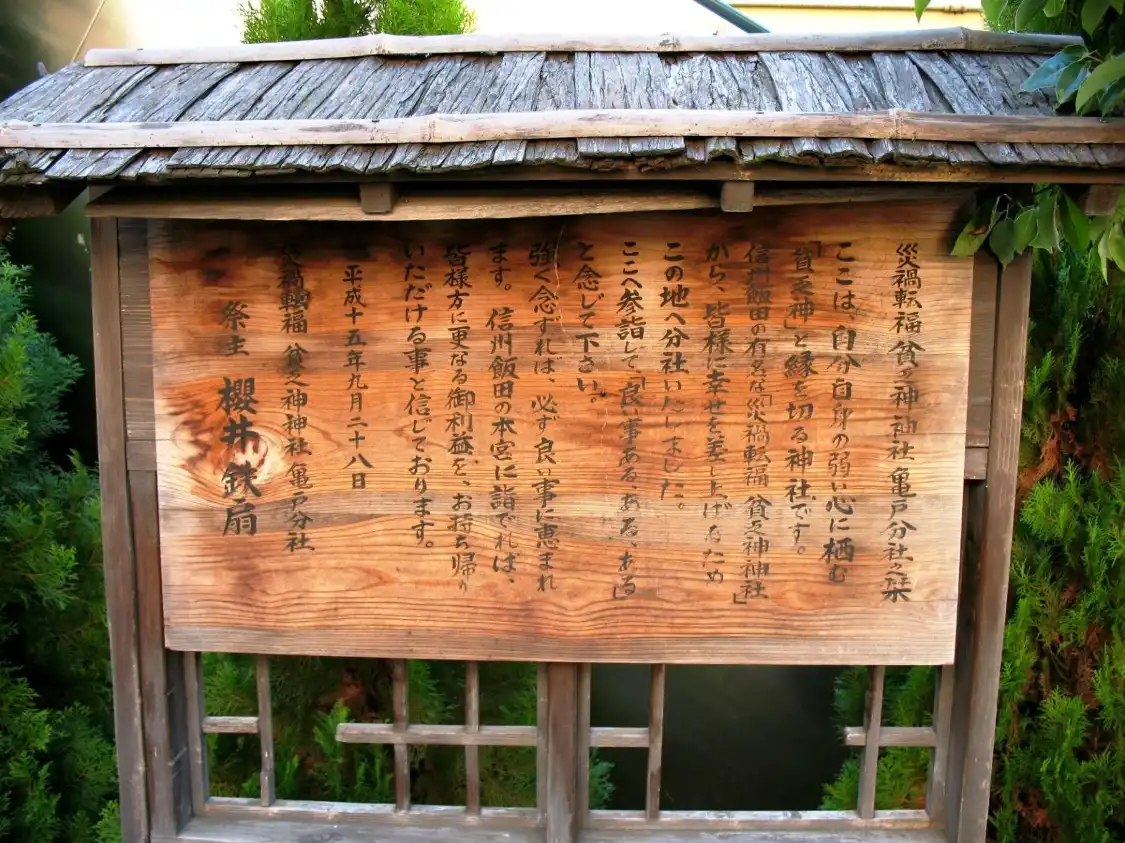 災禍転福 貧乏神神社 亀戸分社の栞
ここは、自分自身の弱い心に栖む
「貧乏神」と縁を切る神社です。
信州飯田の有名な「災禍転福 貧乏神神社」
から、皆様に幸せを差し上げるため
この地へ分社いたしました。
ここへ参詣して「良い事ある、ある、ある」
と念じて下さい。
強く念ずれば、必ず良い事に恵まれ
ます。信州飯田の本宮に詣でれば、
皆様方に更なる御利益を、お持ち帰り
いただける事と信じております。
平成十五年九月二十八日
災禍転福 貧乏神神社 亀戸分社
祭主 櫻井鉄扇